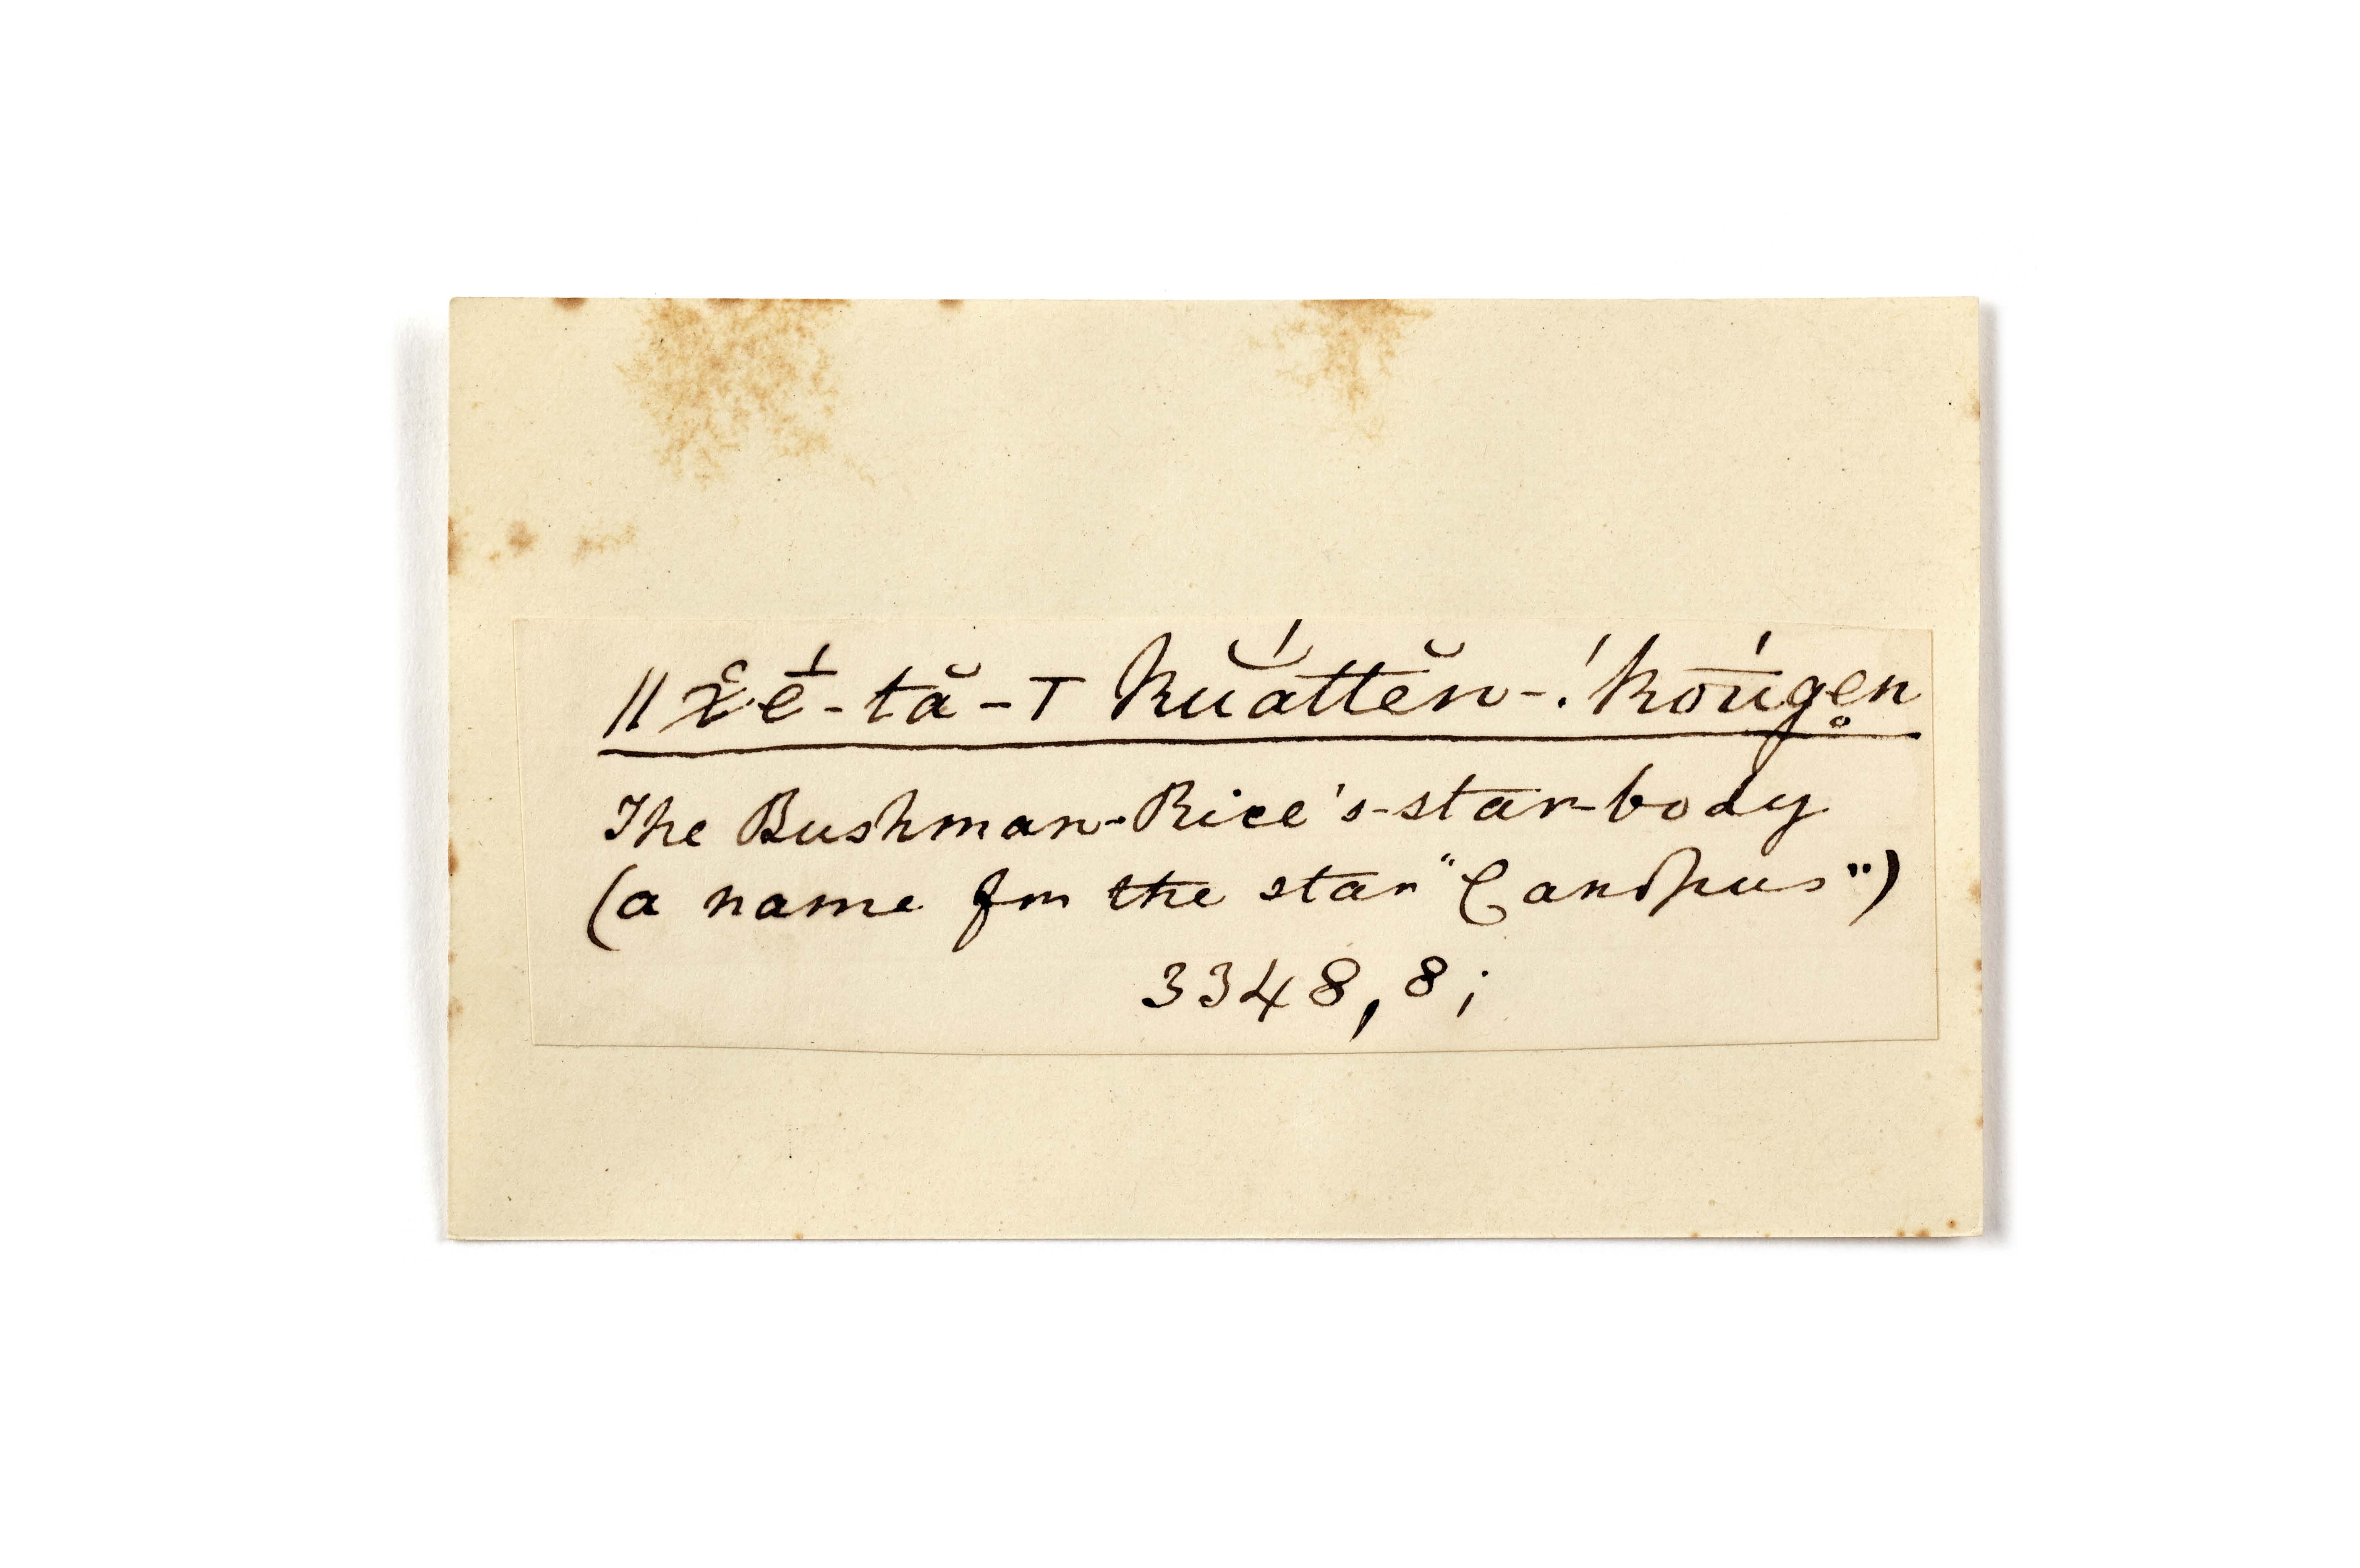 ǁχé̄-tă-ꞱKŭ́attĕn-!k'oú̄ge̥n
The Bushman-Rice's-star-body
(a name for the star "Canopus")
3348, 8;